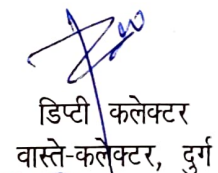 डिप्टी कलेक्टर
वास्ते-कलेक्टर, दुर्ग